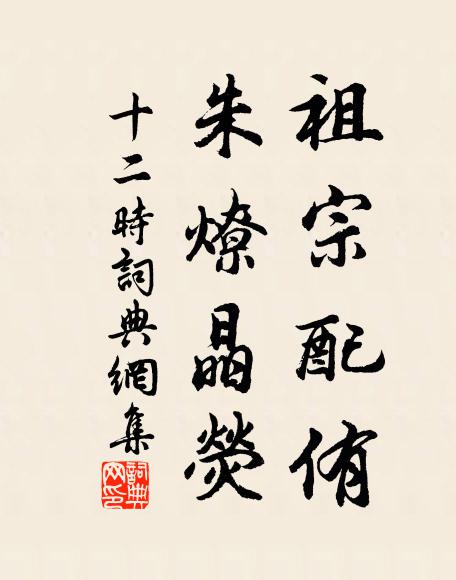 祖宗配侑
朱燎晶熒
十二時詞典網集
詞典網印